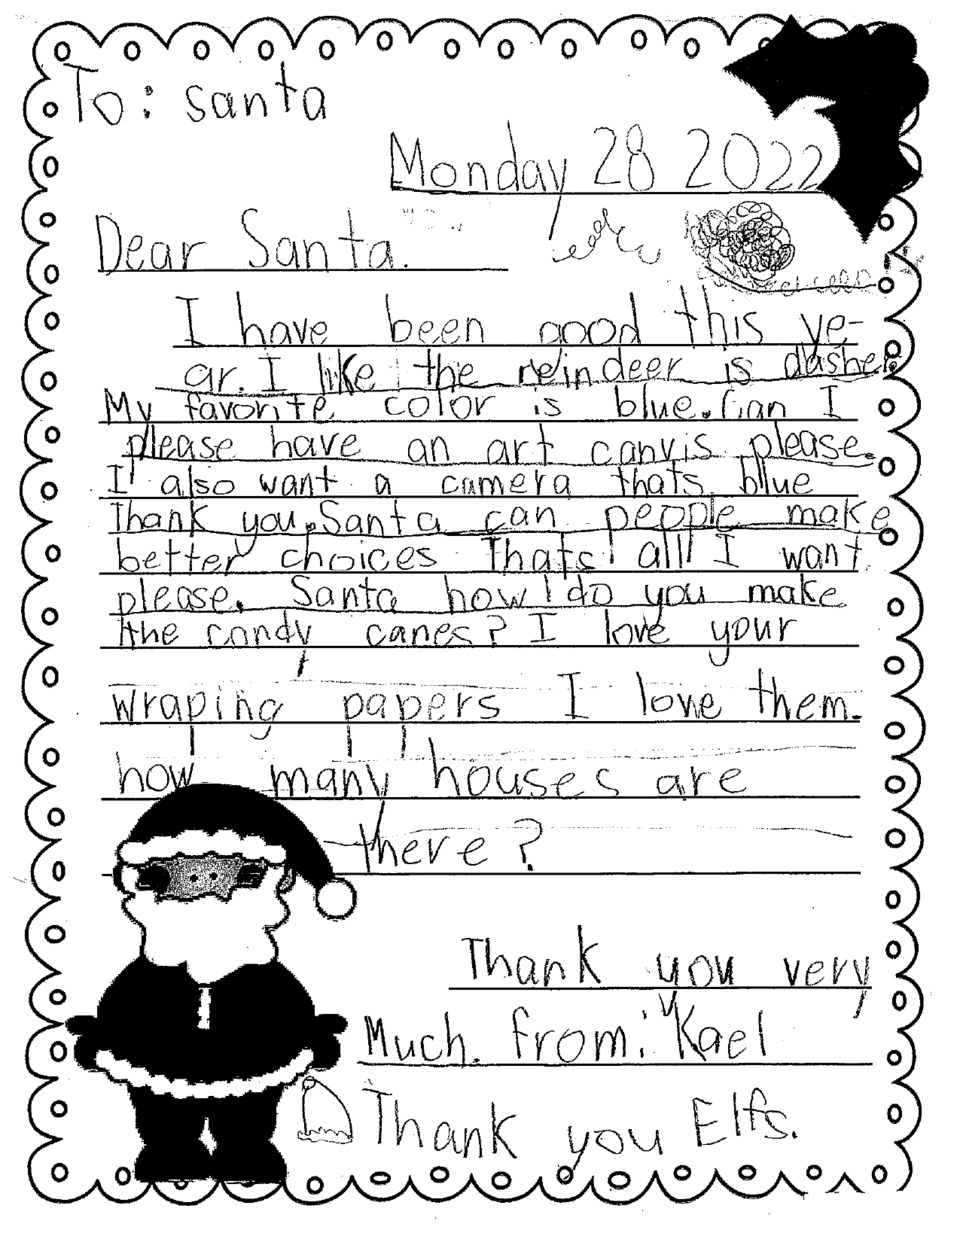 To: santa
Monday 28 2022
Dear Santa.
I have been good this ye-
ar. I like the reindeer is dasher
My favorite color is blue. Can I
please have an art canvis please.
I also want a camera thats blue
Thank you. Santa can people make
better choices thats all I want
please. Santa how do you make
the candy canes? I love your
wraping papers I love them.
how many houses are
there?
Thank you very
Much. from: Kael
Thank you Elfs.